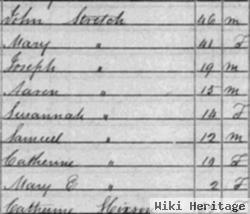 John Stretch 46 m
Mary " 41 F
Joseph " 19 m
Aaron " 15 m
Susannah " 14 F
Samuel " 12 m
Catherine " 10 F
Mary E " 2 F
Catharine
Wiki Heritage